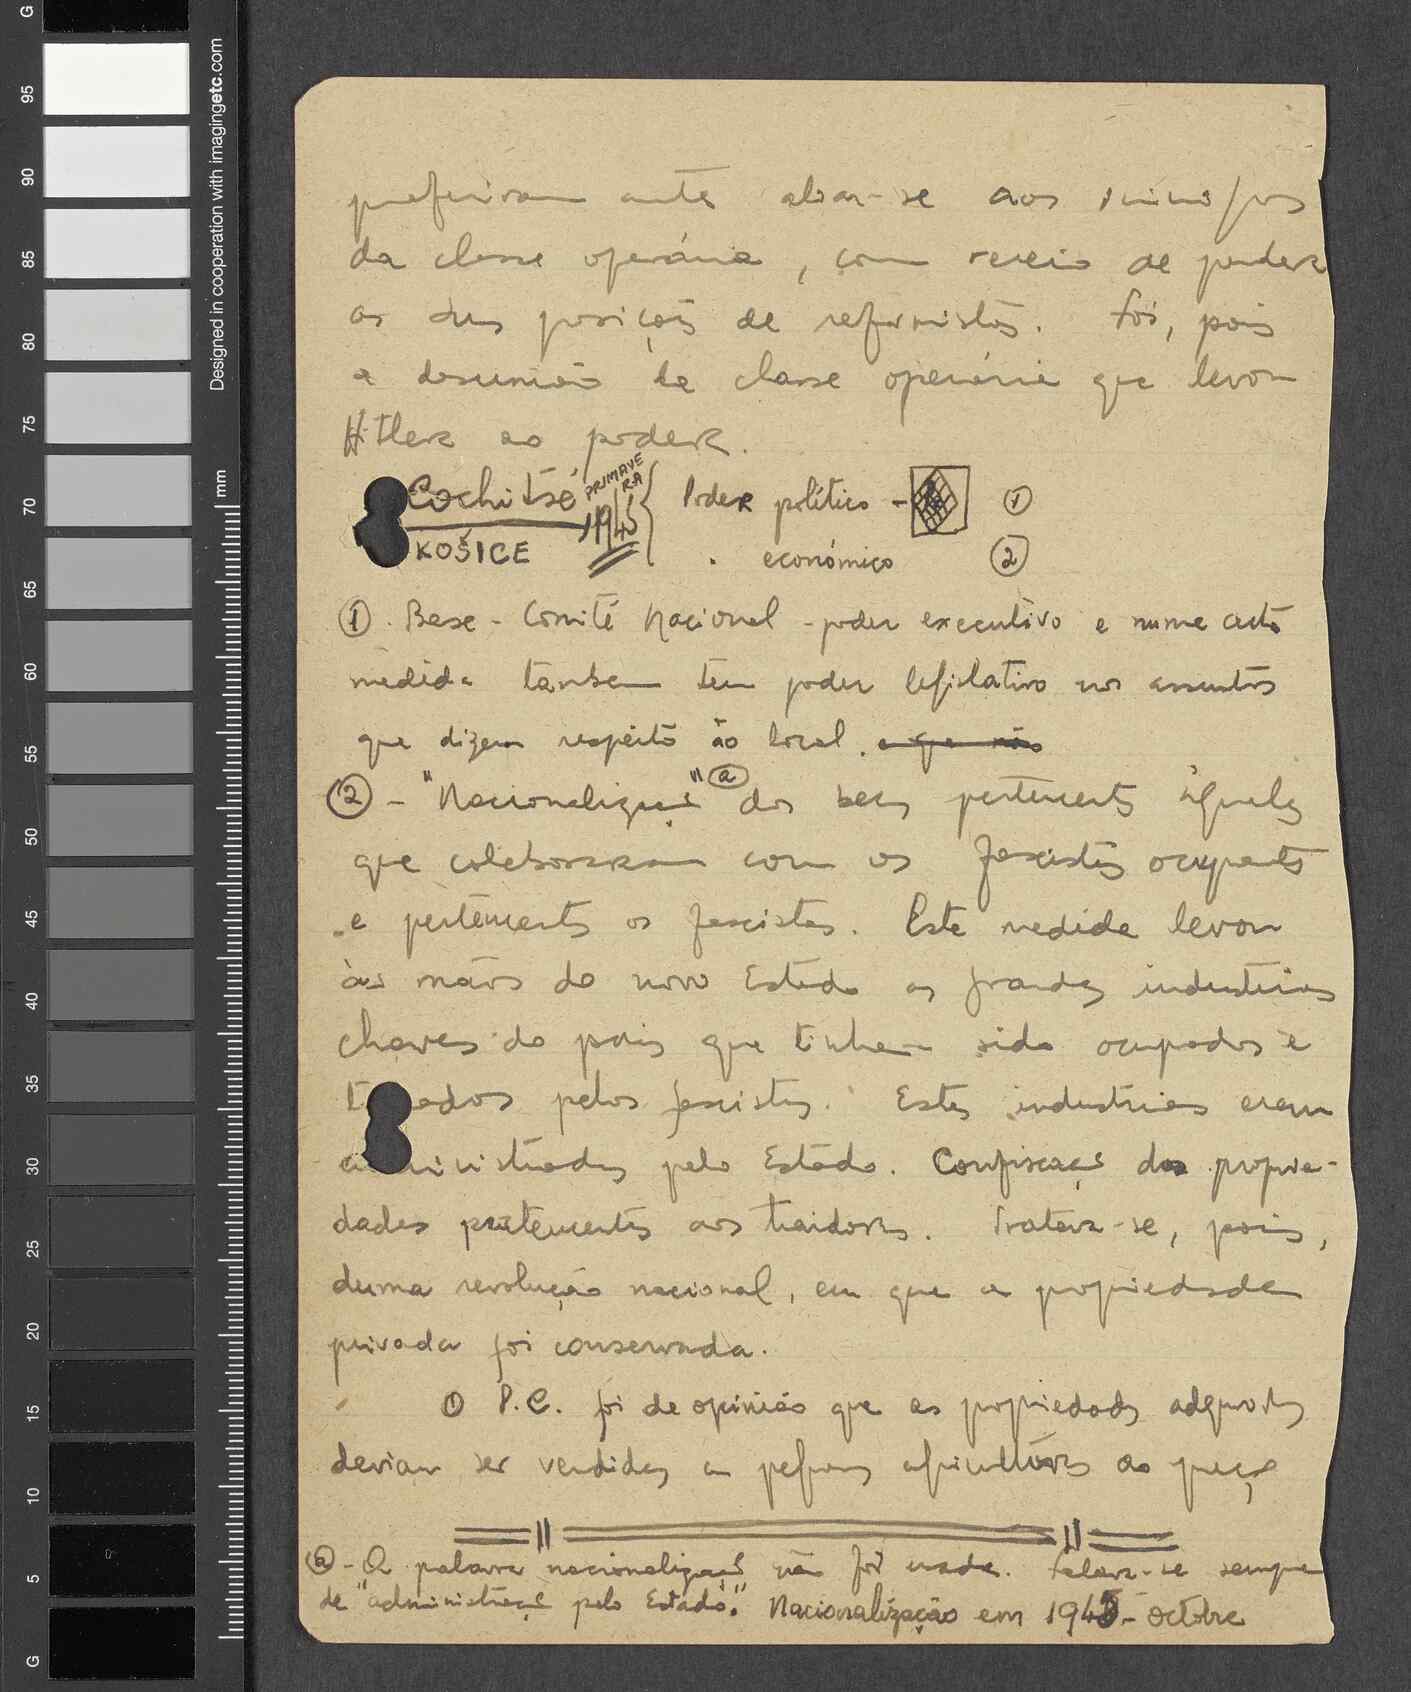 G
95
90
85
80
75
70
65
60
55
50
45
40
35
30
25
20
15
10
5
G
Designed in cooperation with imagingetc.com
mm
preferiram antes aliar-se aos inimigos
da classe operária, com receio de perder
as suas posições de reformistas. Foi, pois
a desunião da classe operária que levou
Hitler ao poder.
Cochitsé PRIMAVERA 1945 { Poder político - ①
KOŠICE " económico ②
① - Base - Comité Nacional - poder executivo e numa certa
medida tambem tem poder legislativo nos assuntos
que dizem respeito ao local. e que não
② - "Nacionalização" ⓐ dos bens pertencentes àqueles
que colaboraram com os fascistas ocupantes
e pertencentes os fascistas. Esta medida levou
às mãos do novo Estado as grandes industrias
chaves do pais que tinham sido ocupados e
t adas pelos fascistas. Estas industrias eram
administradas pelo Estado. Confiscação das proprie-
dades pertencentes aos traidores. Tratava-se, pois,
duma revolução nacional, em que a propriedade
privada foi conservada.
O P.C. foi de opinião que as propriedades
deviam ser vendidas a pequenos agricultores ao preço
ⓐ - A palavra nacionalização não foi usada. Falava-se sempre
de "administração pelo Estado." Nacionalização em 1945 - octobre